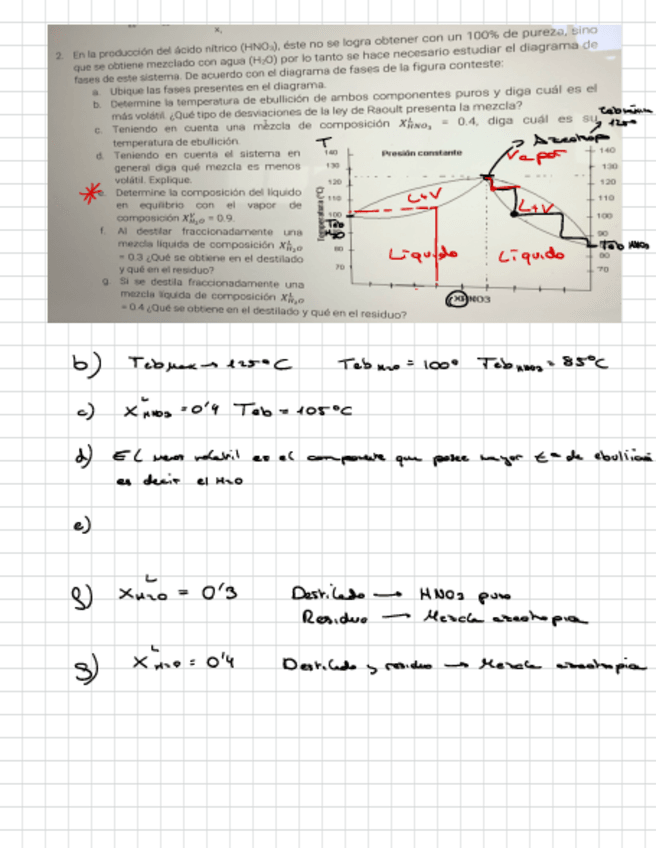 X,
2. En la producción del ácido nítrico (HNO₃), éste no se logra obtener con un 100% de pureza, sino
que se obtiene mezclado con agua (H₂O) por lo tanto se hace necesario estudiar el diagrama de
fases de este sistema. De acuerdo con el diagrama de fases de la figura conteste:
a. Ubique las fases presentes en el diagrama.
b. Determine la temperatura de ebullición de ambos componentes puros y diga cuál es el
más volátil. ¿Qué tipo de desviaciones de la ley de Raoult presenta la mezcla?
c. Teniendo en cuenta una mezcla de composición X^L_HNO₃ = 0.4, diga cuál es su
temperatura de ebullición.
d. Teniendo en cuenta el sistema en
general diga qué mezcla es menos
volátil. Explique.
e. Determine la composición del líquido
en equilibrio con el vapor de
composición X^V_H₂O = 0.9.
f. Al destilar fraccionadamente una
mezcla líquida de composición X^L_H₂O
= 0.3 ¿Qué se obtiene en el destilado
y qué en el residuo?
g. Si se destila fraccionadamente una
mezcla líquida de composición X^L_H₂O
= 0.4 ¿Qué se obtiene en el destilado y qué en el residuo?
T
Presión constante
Azeotropo
Vapor
Temperatura (°C)
140
130
120
110
100
90
80
70
140
130
120
110
100
90
80
70
L+V
L+V
Líquido
Líquido
Teb HNO3
XHNO3
b) Teb max → 125°C Teb H2O = 100° Teb HNO3 = 85°C
c) X^L HNO3 = 0'4 Teb = 105°C
d) El menos volatil es el componente que posee mayor tª de ebullición
es decir el H2O
e)
f) X^L H2O = 0'3 Destilado → HNO3 puro
Residuo → Mezcla azeotropia
g) X^L H2O = 0'4 Destilado y residuo → Mezcla azeotropia